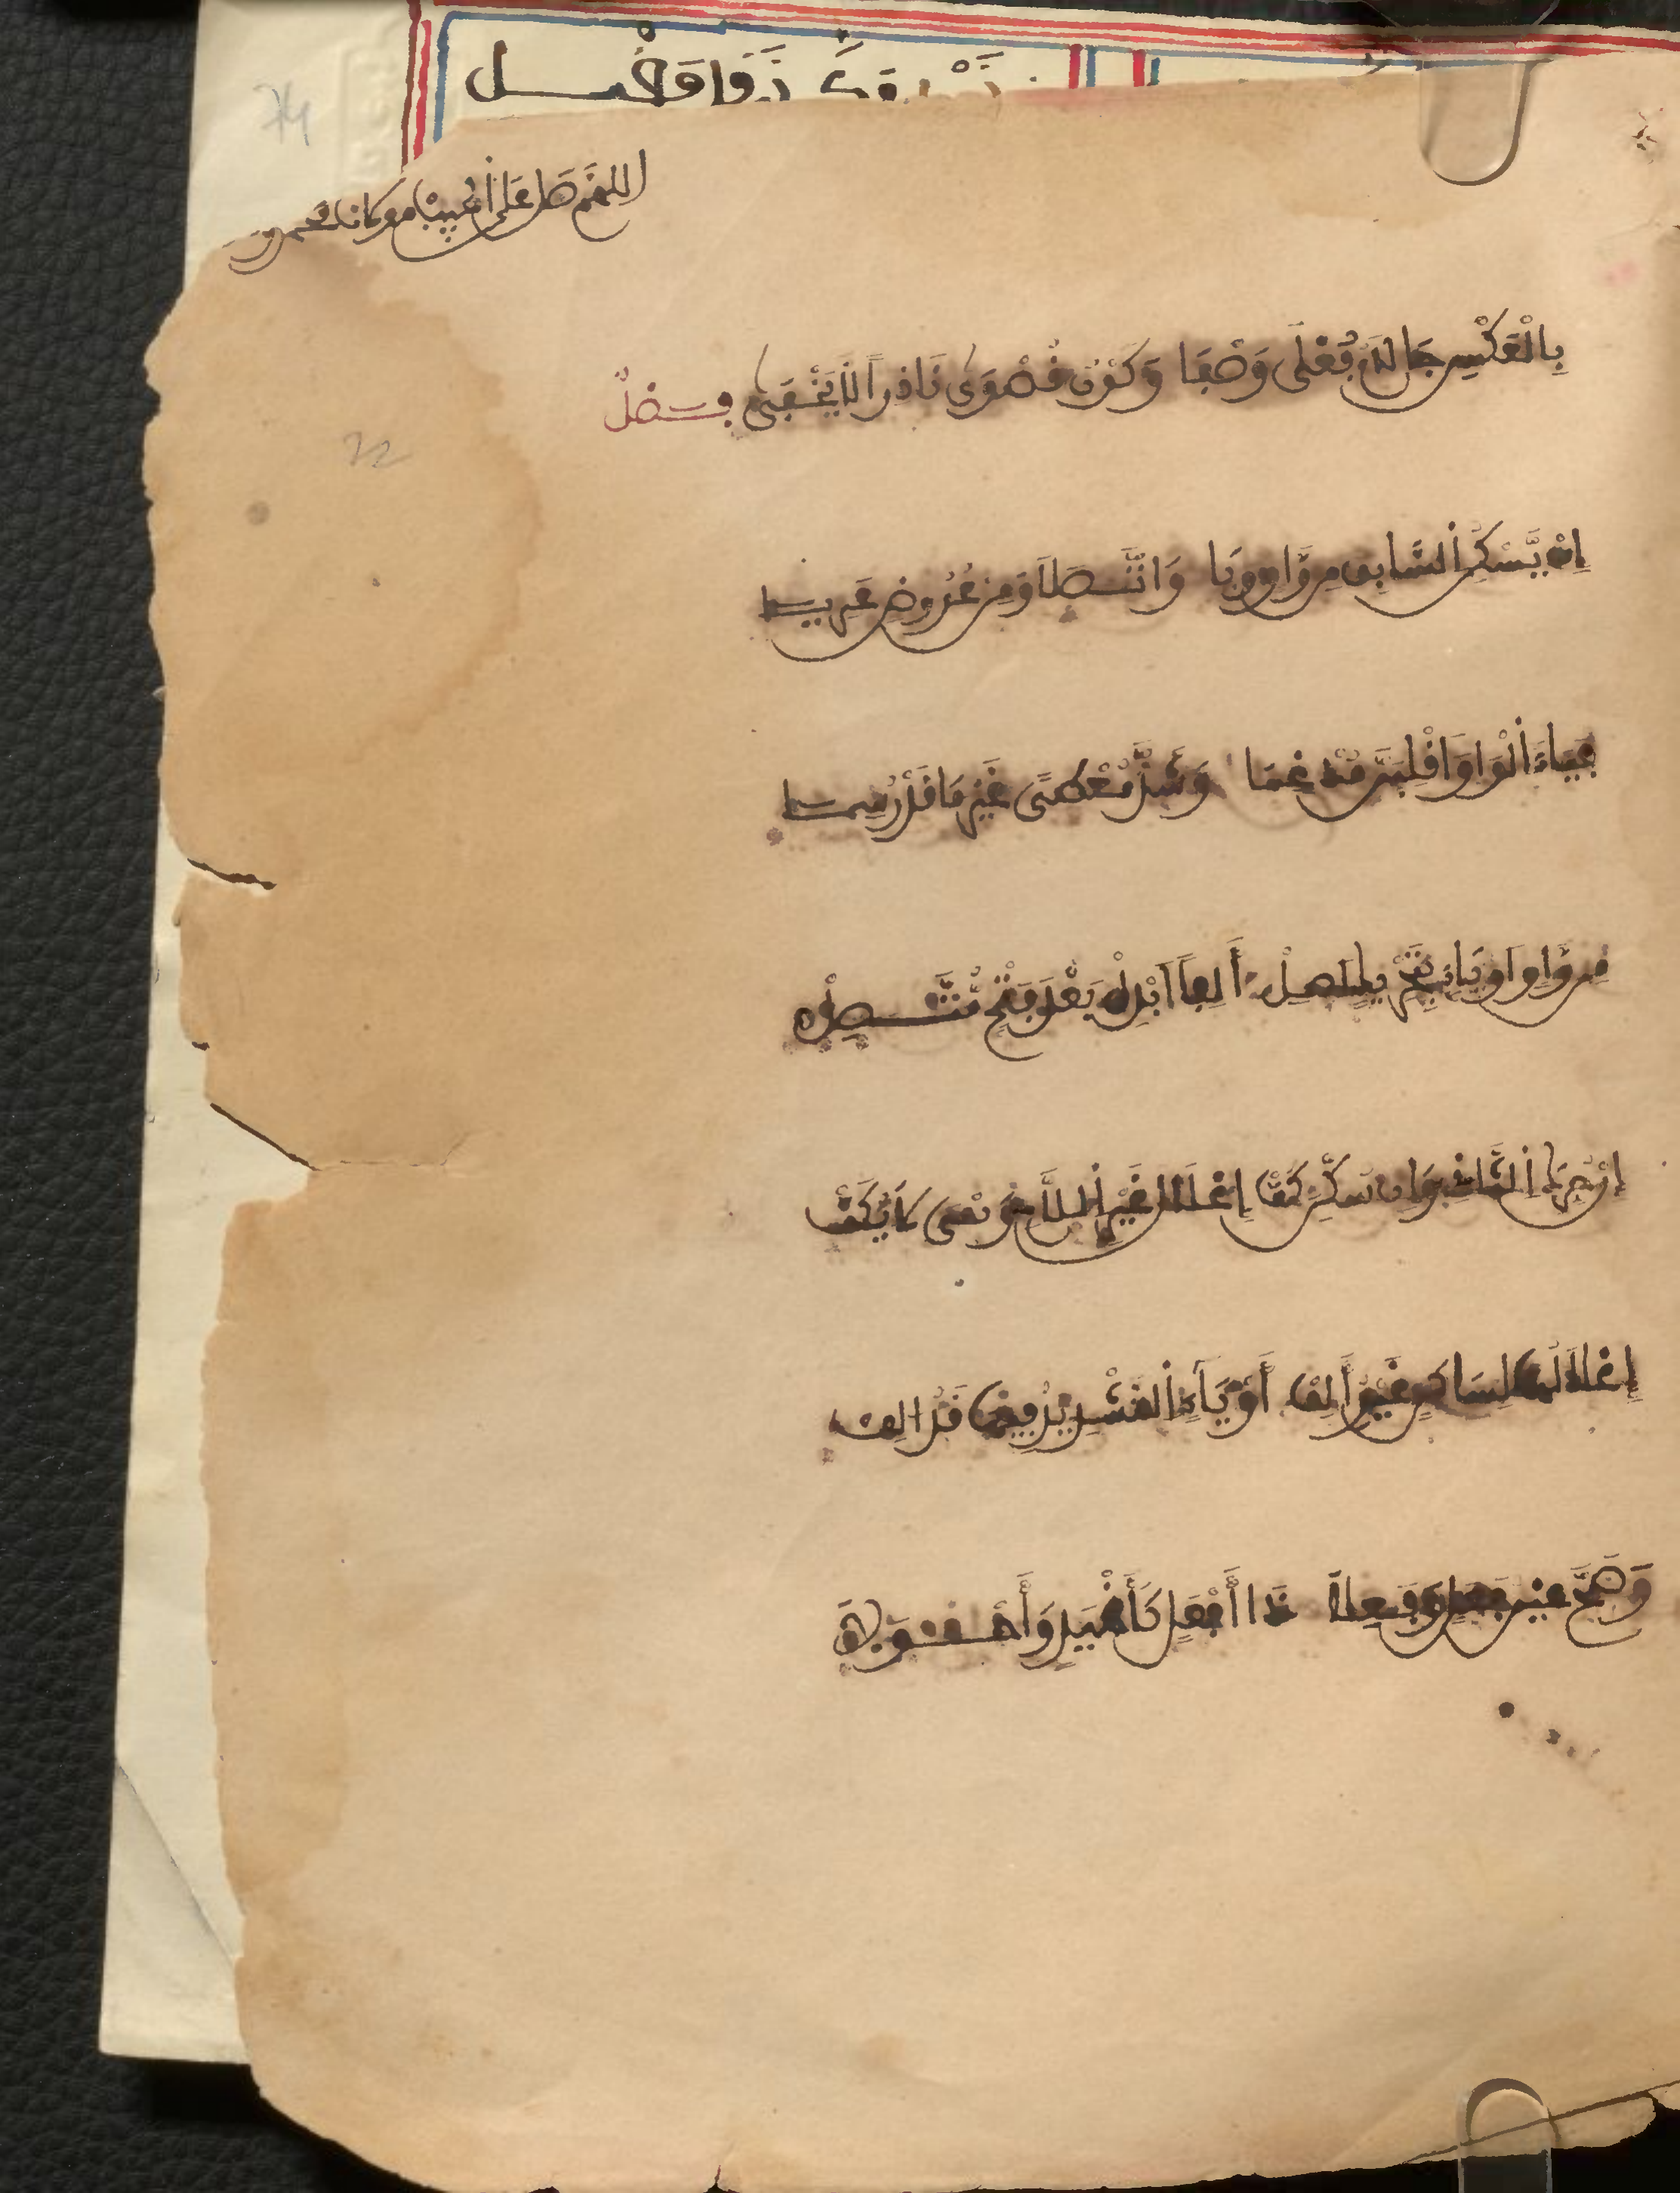 اللهم صل على الحبيب
بِالْعَكْسِ جَا لَامُ فُعْلَى وَصْفَا وَكَوْنُ قُصْوَى نَادِراً لَا يَخْفَى فصل
إِنْ يَّسْكُنِ السَّابِقُ مِن وَّاوٍ وَيَا وَاتَّصَلَا وَمِنْ عُرُوضٍ عَرِيَا
فَيَاءً الْوَاوَ اقْلِبَنَّ مُدْغِمَا وَشَذَّ مُعْطًى غَيْرَ مَا قَدْ رُسِمَا
مِن وَّاوٍ اوْ يَاءٍ بِتَحْرِيكٍ أُصِلْ أَلِفاً ابْدِلْ بَعْدَ فَتْحٍ مُّتَّصِلْ
إِنْ حُرِّكَ التَّالِي وَإِن سُكِّنَ كَفّْ إِعْلَالَ غَيْرِ اللَّامِ وَهْيَ لَا يُكَفّْ
إِعْلَالُهَا بِسَاكِنٍ غَيْرِ أَلِفْ أَوْ يَاءٍ التَّشْدِيدُ فِيهَا قَدْ أُلِفْ
وَصَحَّ عَيْنُ فَعَلٍ وَفَعِلَا ذَا أَفْعَلٍ كَأَغْيَدٍ وَأَحْوَلَا